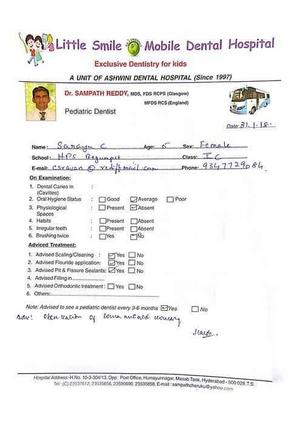 Little Smile Mobile Dental Hospital
Exclusive Dentistry for kids
A UNIT OF ASHWINI DENTAL HOSPITAL (Since 1997)
Dr. SAMPATH REDDY, MDS, FDS RCPS (Glasgow)
MFDS RCS (England)
Pediatric Dentist
Date: 31.1.15
Name: Sarayu C Age: 5 Sex: Female
School: HPS Begumpet Class: I C
E-mail: Phone: 9347729084
On Examination:
1. Dental Caries in :
(Cavities)
2. Oral Hygiene Status : Good Average Poor
3. Physiological : Present Absent
Spaces
4. Habits : Present Absent
5. Irregular teeth : Present Absent
6. Brushing twice : Yes No
Advised Treatment:
1. Advised Scaling/Cleaning : Yes No
2. Advised Flouride application: Yes No
3. Advised Pit & Fissure Sealants: Yes No
4. Advised Filling in
5. Advised Orthodontic treatment : Yes No
6. Others:
Note: Advised to see a pediatric dentist every 3-6 months Yes No
Adv: of
Hospital Address-H.No. 10-3-304/13, Opp. Post Office, Humayunnagar, Masab Tank, Hyderabad - 500 028. T.S.